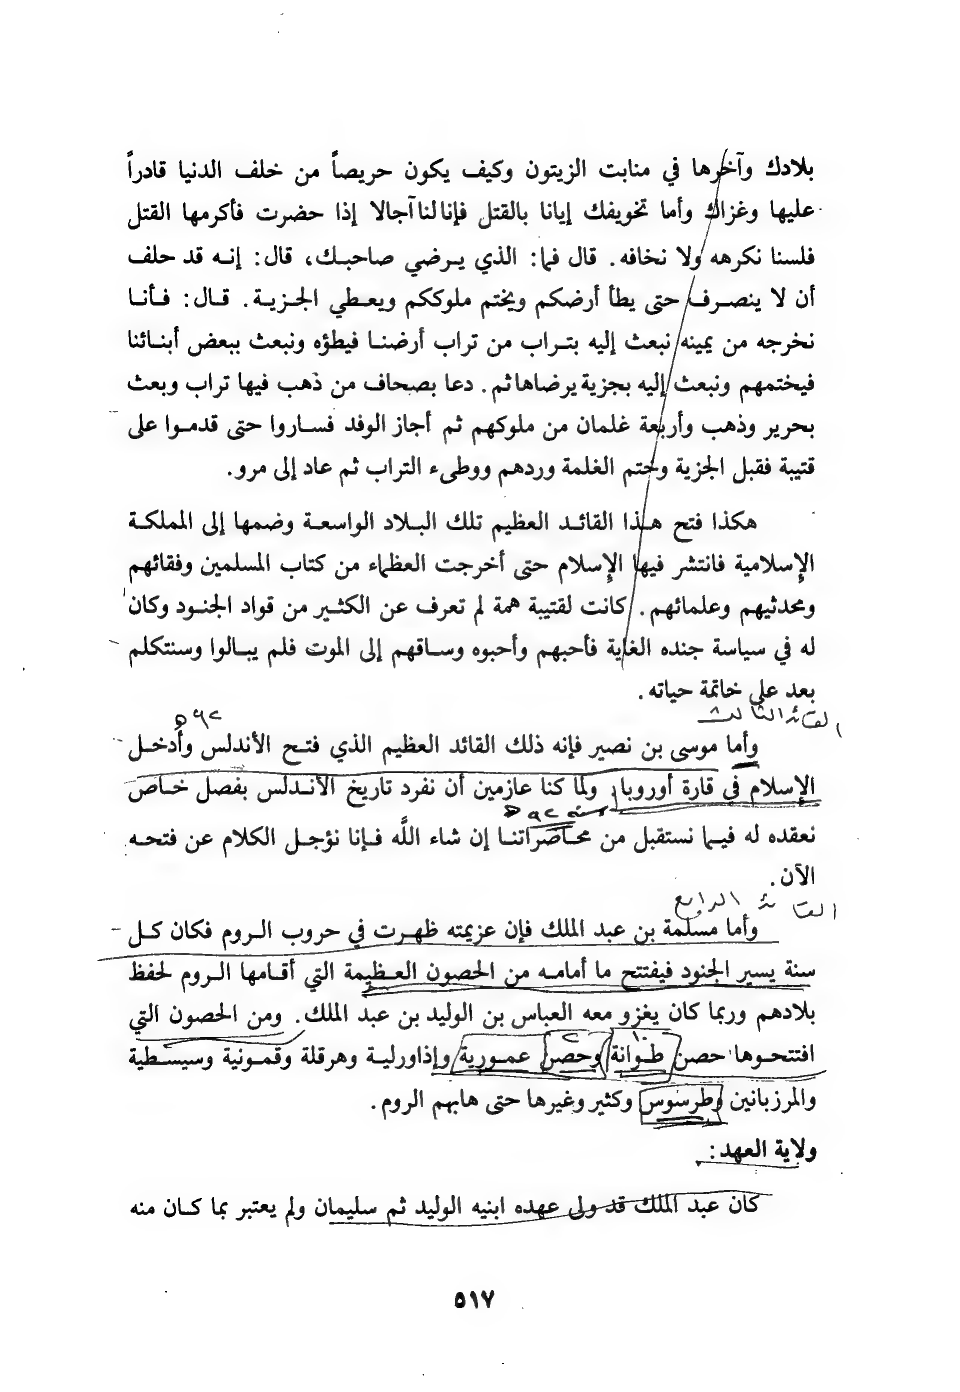 بلادك وآخرها في منابت الزيتون وكيف يكون حريصاً من خلف الدنيا قادراً
عليها وغزاك وأما تخويفك إيانا بالقتل فإنا لنا آجالا إذا حضرت فأكرمها القتل
فلسنا نكرهه ولا نخافه. قال فما: الذي يرضي صاحبك، قال: إنه قد حلف
أن لا ينصرف حتى يطأ أرضكم ويختم ملوككم ويعطي الجزية. قال: فأنا
نخرجه من يمينه نبعث إليه بتراب من تراب أرضنا فيطؤه ونبعث ببعض أبنائنا
فيختمهم ونبعث إليه بجزية يرضاها ثم. دعا بصحاف من ذهب فيها تراب وبعث
بحرير وذهب وأربعة غلمان من ملوكهم ثم أجاز الوفد فساروا حتى قدموا على
قتيبة فقبل الجزية وختم الغلمة وردهم ووطىء التراب ثم عاد إلى مرو.
هكذا فتح هذا القائد العظيم تلك البلاد الواسعة وضمها إلى المملكة
الإسلامية فانتشر فيها الإسلام حتى أخرجت العظماء من كتاب المسلمين وفقائهم
ومحدثيهم وعلمائهم. كانت لقتيبة همة لم تعرف عن الكثير من قواد الجنود وكان
له في سياسة جنده الغاية فأحبهم وأحبوه وساقهم إلى الموت فلم يبالوا وسنتكلم
بعد على خاتمة حياته.
القائد الثالث ٩٢ هـ
وأما موسى بن نصير فإنه ذلك القائد العظيم الذي فتح الأندلس وأدخل
الإسلام في قارة أوروبا، ولما كنا عازمين أن نفرد تاريخ الأندلس بفصل خاص
سنة ٩٢ هـ
نعقده له فيما نستقبل من محاضراتنا إن شاء الله فإنا نؤجل الكلام عن فتحه
الآن.
القائد الرابع
وأما مسلمة بن عبد الملك فإن عزيمته ظهرت في حروب الروم فكان كل
سنة يسير الجنود فيفتتح ما أمامه من الحصون العظيمة التي أقامها الروم لحفظ
بلادهم وربما كان يغزو معه العباس بن الوليد بن عبد الملك. ومن الحصون التي
افتتحوها حصن طوانة وحصن عمورية وإذاورلية وهرقلة وقمونية وسبسطية
والمرزبانين وطرسوس وكثير وغيرها حتى هابهم الروم.
ولاية العهد:
كان عبد الملك قد ولى عهده ابنيه الوليد ثم سليمان ولم يعتبر بما كان منه
٥١٧